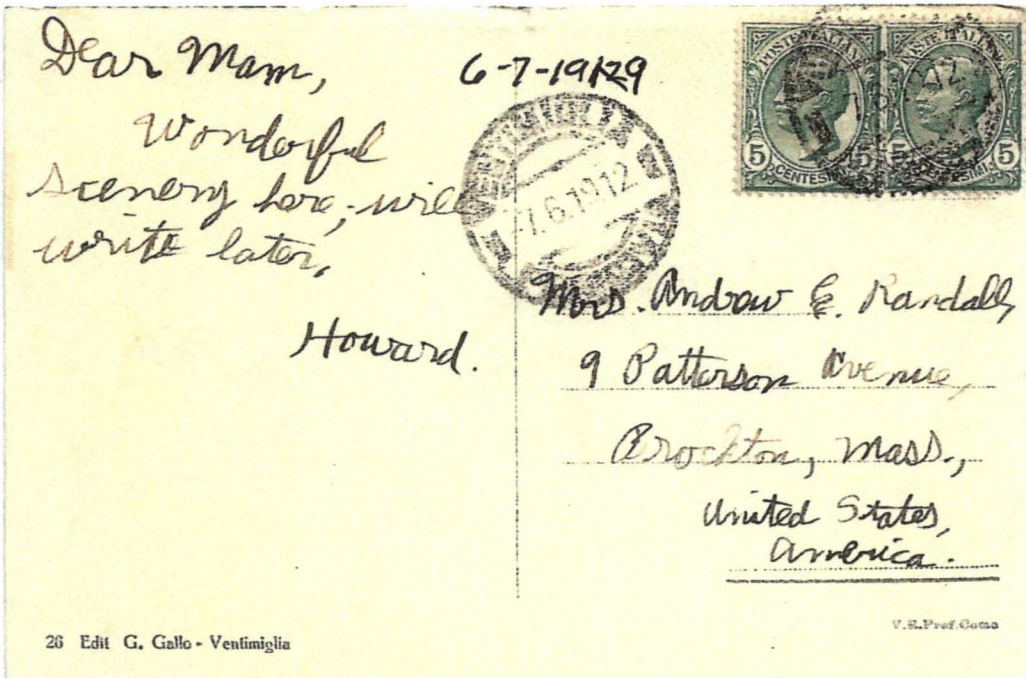 Dear Mam,
Wonderful
scenery here; will
write later,
Howard.
6-7-19129
VENTIMIGLIA
-7.6.1912
POSTE ITALIANE
5 CENTESIMI 5
POSTE ITALIANE
5 CENTESIMI 5
12
Mrs. Andrew E. Randall,
9 Patterson Avenue,
Brockton, Mass.,
United States,
America.
26 Edit G. Gallo - Ventimiglia
V.E.Prof.Como